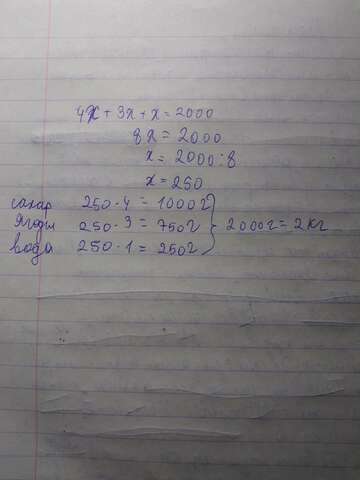 4x + 3x + x = 2000
8x = 2000
x = 2000:8
x = 250
сахар 250 · 4 = 1000г
ягоды 250 · 3 = 750г } 2000г = 2 кг
вода 250 · 1 = 250г